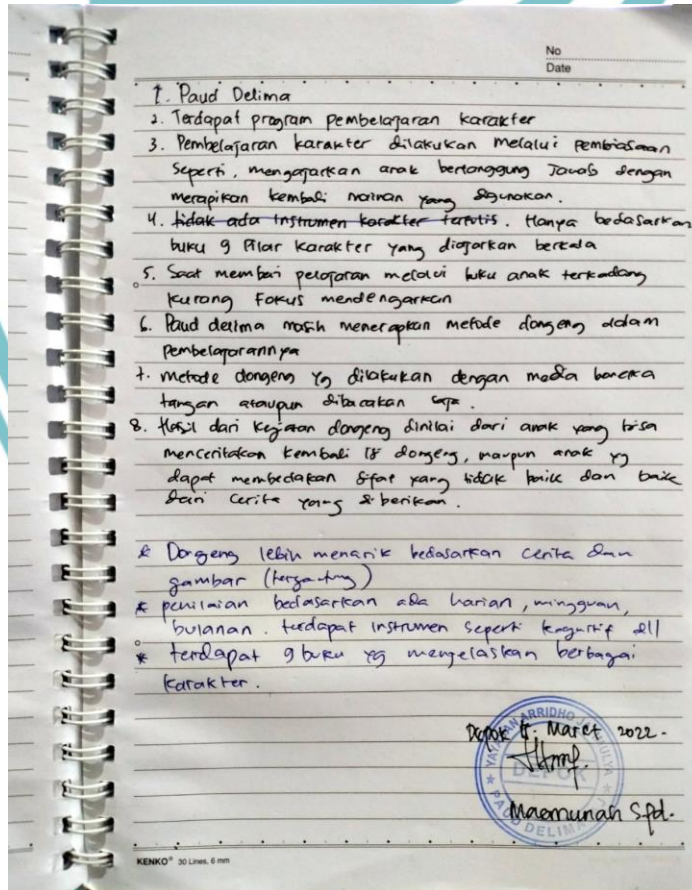 No
Date
1. Paud Delima
2. Terdapat program pembelajaran karakter
3. Pembelajaran karakter dilakukan melalui pembiasaan
seperti, mengajarkan anak bertanggung Jawab dengan
merapikan kembali mainan yang digunakan.
4. tidak ada instrumen karakter tertulis. Hanya bedasarkan
buku 9 Pilar karakter yang diajarkan berkala
5. Saat memberi pelajaran melalui buku anak terkadang
kurang Fokus mendengarkan
6. Paud delima masih menerapkan metode dongeng dalam
pembelajarannya
7. metode dongeng yg dilakukan dengan media boneka
tangan ataupun dibacakan saja.
8. Hasil dari kegiatan dongeng dinilai dari anak yang bisa
menceritakan kembali isi dongeng, maupun anak yg
dapat membedakan sifat yang tidak baik dan baik
dari cerita yang diberikan.
* Dongeng lebih menarik bedasarkan cerita dan
gambar (tergantung)
* penilaian bedasarkan ada harian, mingguan,
bulanan. terdapat instrumen seperti kognitif dll
* terdapat 9 buku yg menjelaskan berbagai
karakter.
Depok Maret 2022.
YAYASAN ARRIDHO
DEPOK
PAUD DELIMA
Maemunah S.pd.
KENKO® 30 Lines, 6 mm